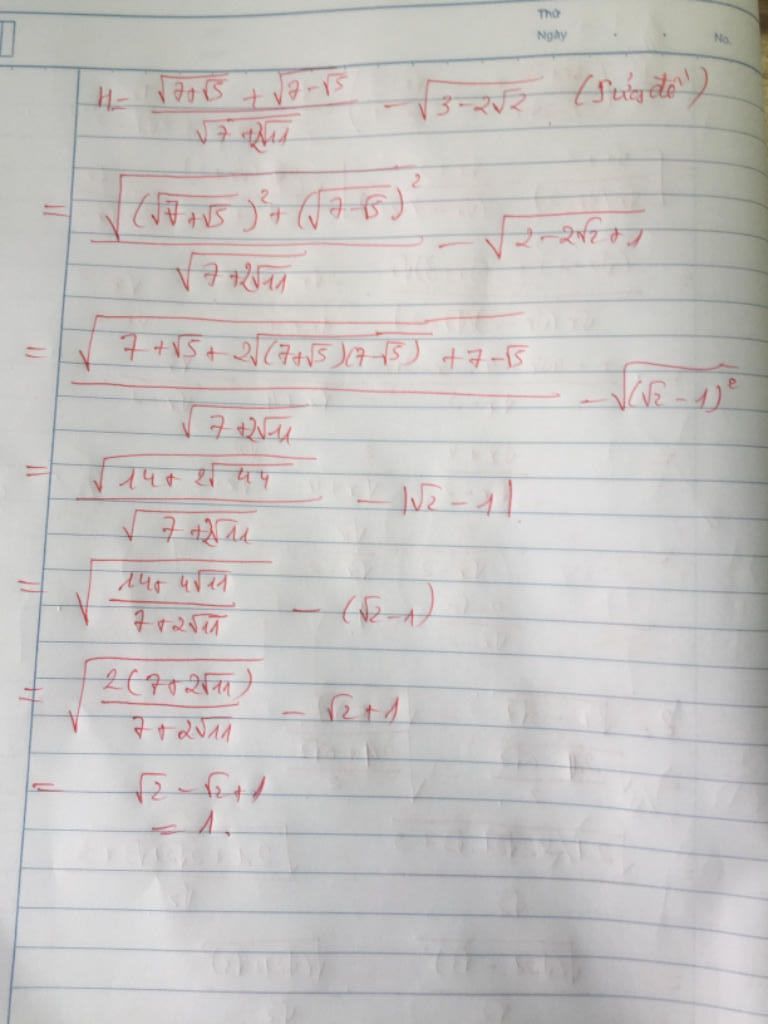 Thứ
Ngày . . No.
H = (√(7+√5) + √(7-√5))/√(7+2√11) - √(3-2√2) (Sửa đề)
= √((√(7+√5))² + (√(7-√5))²)/√(7+2√11) - √(2-2√2+1)
= √(7+√5+2√((7+√5)(7-√5))+7-√5)/√(7+2√11) - √((√2-1)²)
= √(14+2√44)/√(7+2√11) - |√2-1|
= √((14+4√11)/(7+2√11)) - (√2-1)
= √(2(7+2√11)/(7+2√11)) - √2+1
= √2-√2+1
= 1.